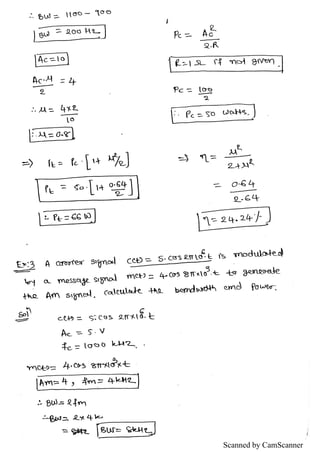 ∴ BW = 1100 - 900
BW = 200 Hz
Ac = 10
Ac.μ / 2 = 4
∴ μ = 4×2 / 10
∴ μ = 0.8
Pc = Ac² / 2.R
R = 1 Ω if not given.
Pc = 100 / 2
∴ Pc = 50 watts.
=> Pt = Pc . [1 + μ²/2]
Pt = 50 . [1 + 0.64/2]
∴ Pt = 66 W
=> η = μ² / 2+μ²
= 0.64 / 2.64
η = 24.24 %
Ex:3 A carrier signal c(t) = 5.cos 2π10⁶.t is modulated
by a message signal m(t) = 4.cos 8π×10³.t to generate
the Am signal, calculate the bandwidth and Power.
Sol c(t) = 5.cos 2π×10⁶.t
Ac = 5.V
fc = 1000 kHz.
m(t) = 4.cos 8π×10³×t
Am = 4, fm = 4kHz
∴ BW = 2fm
BW = 2×4k
= BW = 8kHz
Scanned by CamScanner